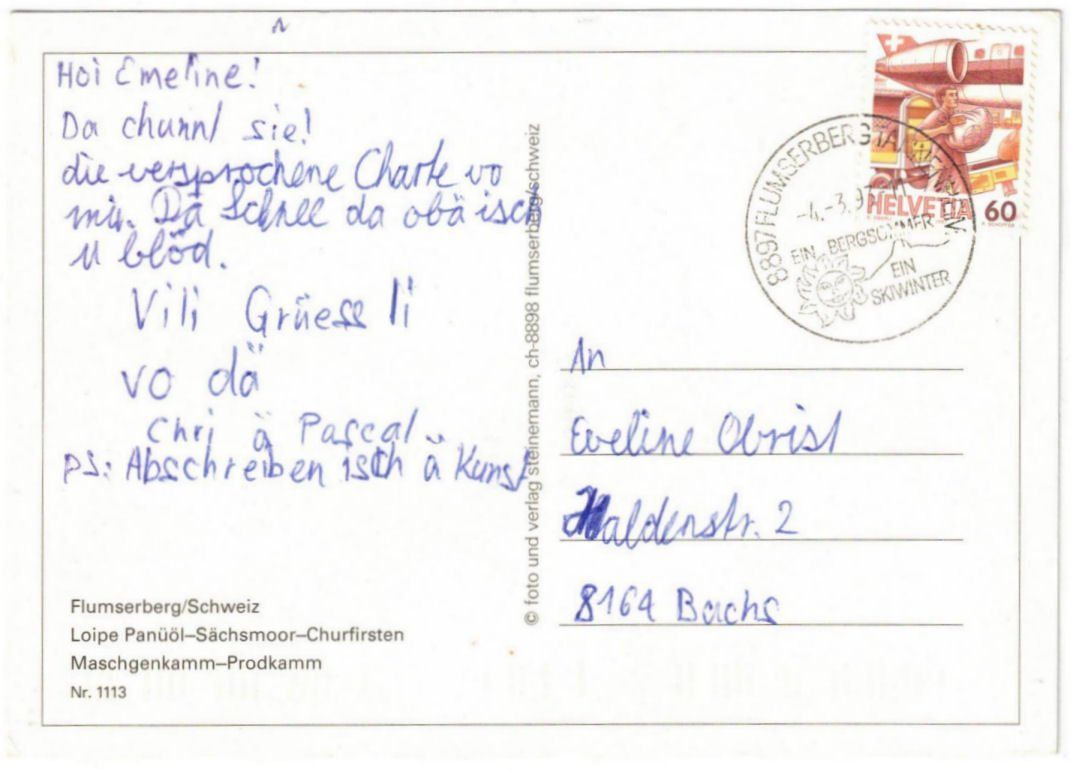 Hoi Emeline!
Da chunnt sie!
die versprochene Charte vo
mir. Dä Schnee da obä isch
u blöd.
Vili Grüessli
vo dä
Chri ä Pascal
PS: Abschreiben isch ä Kunst
Flumserberg/Schweiz
Loipe Panüöl–Sächsmoor–Churfirsten
Maschgenkamm–Prodkamm
Nr. 1113
© foto und verlag steinemann, ch-8898 flumserberg/schweiz
HELVETIA 60
8897 FLUMSERBERG
-4.-3.9
EIN BERGSOMMER
EIN
SKIWINTER
An
Eveline Obrist
Haldenstr. 2
8164 Bachs